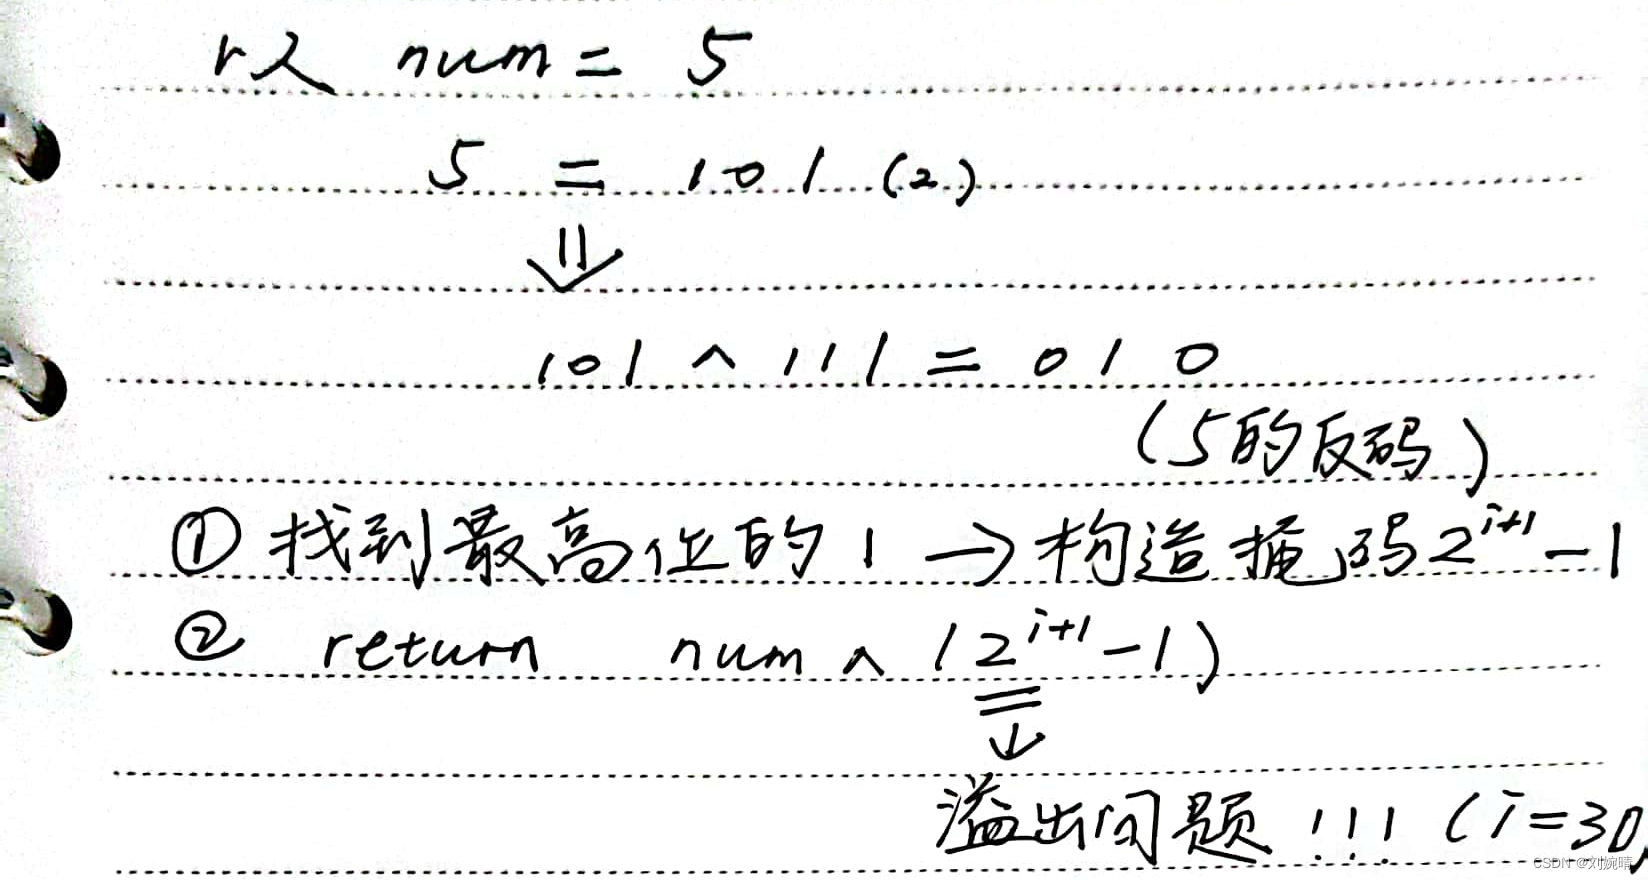 以 num = 5
5 = 101 (2)
⇓
101 ^ 111 = 010
(5的反码)
① 找到最高位的1 → 构造掩码2^{i+1}-1
② return num ^ (2^{i+1}-1)
↓
溢出问题!!! (i=30)
CSDN @刘婉晴